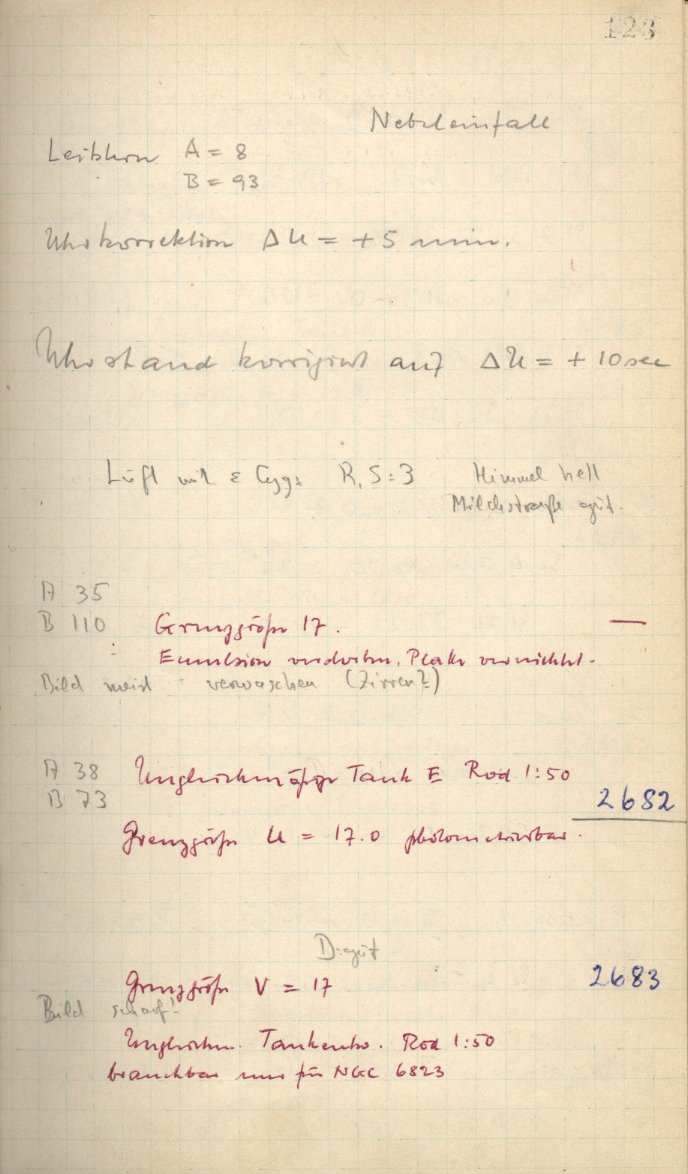 123
Nebeleinfall
Leitstern A = 8
B = 93
Uhrkorrektion Δu = +5 min.
Uhrstand korrigiert auf Δu = +10 sec
Luft mit ε Cyg: R, S: 3 Himmel hell
Milchstraße gut.
A 35
B 110 Grenzgröße 17. —
Emulsion verdorben, Platte vernichtet.
Bild meist verwaschen (Zirren?)
A 38 Ungleichmäßige Tank E Rod 1:50
B 73 2682
Grenzgröße U = 17.0 photometrierbar.
D: gut
Grenzgröße V = 17 2683
Bild scharf!
Ungleichm. Tankentw. Rod 1:50
brauchbar nur für NGC 6823